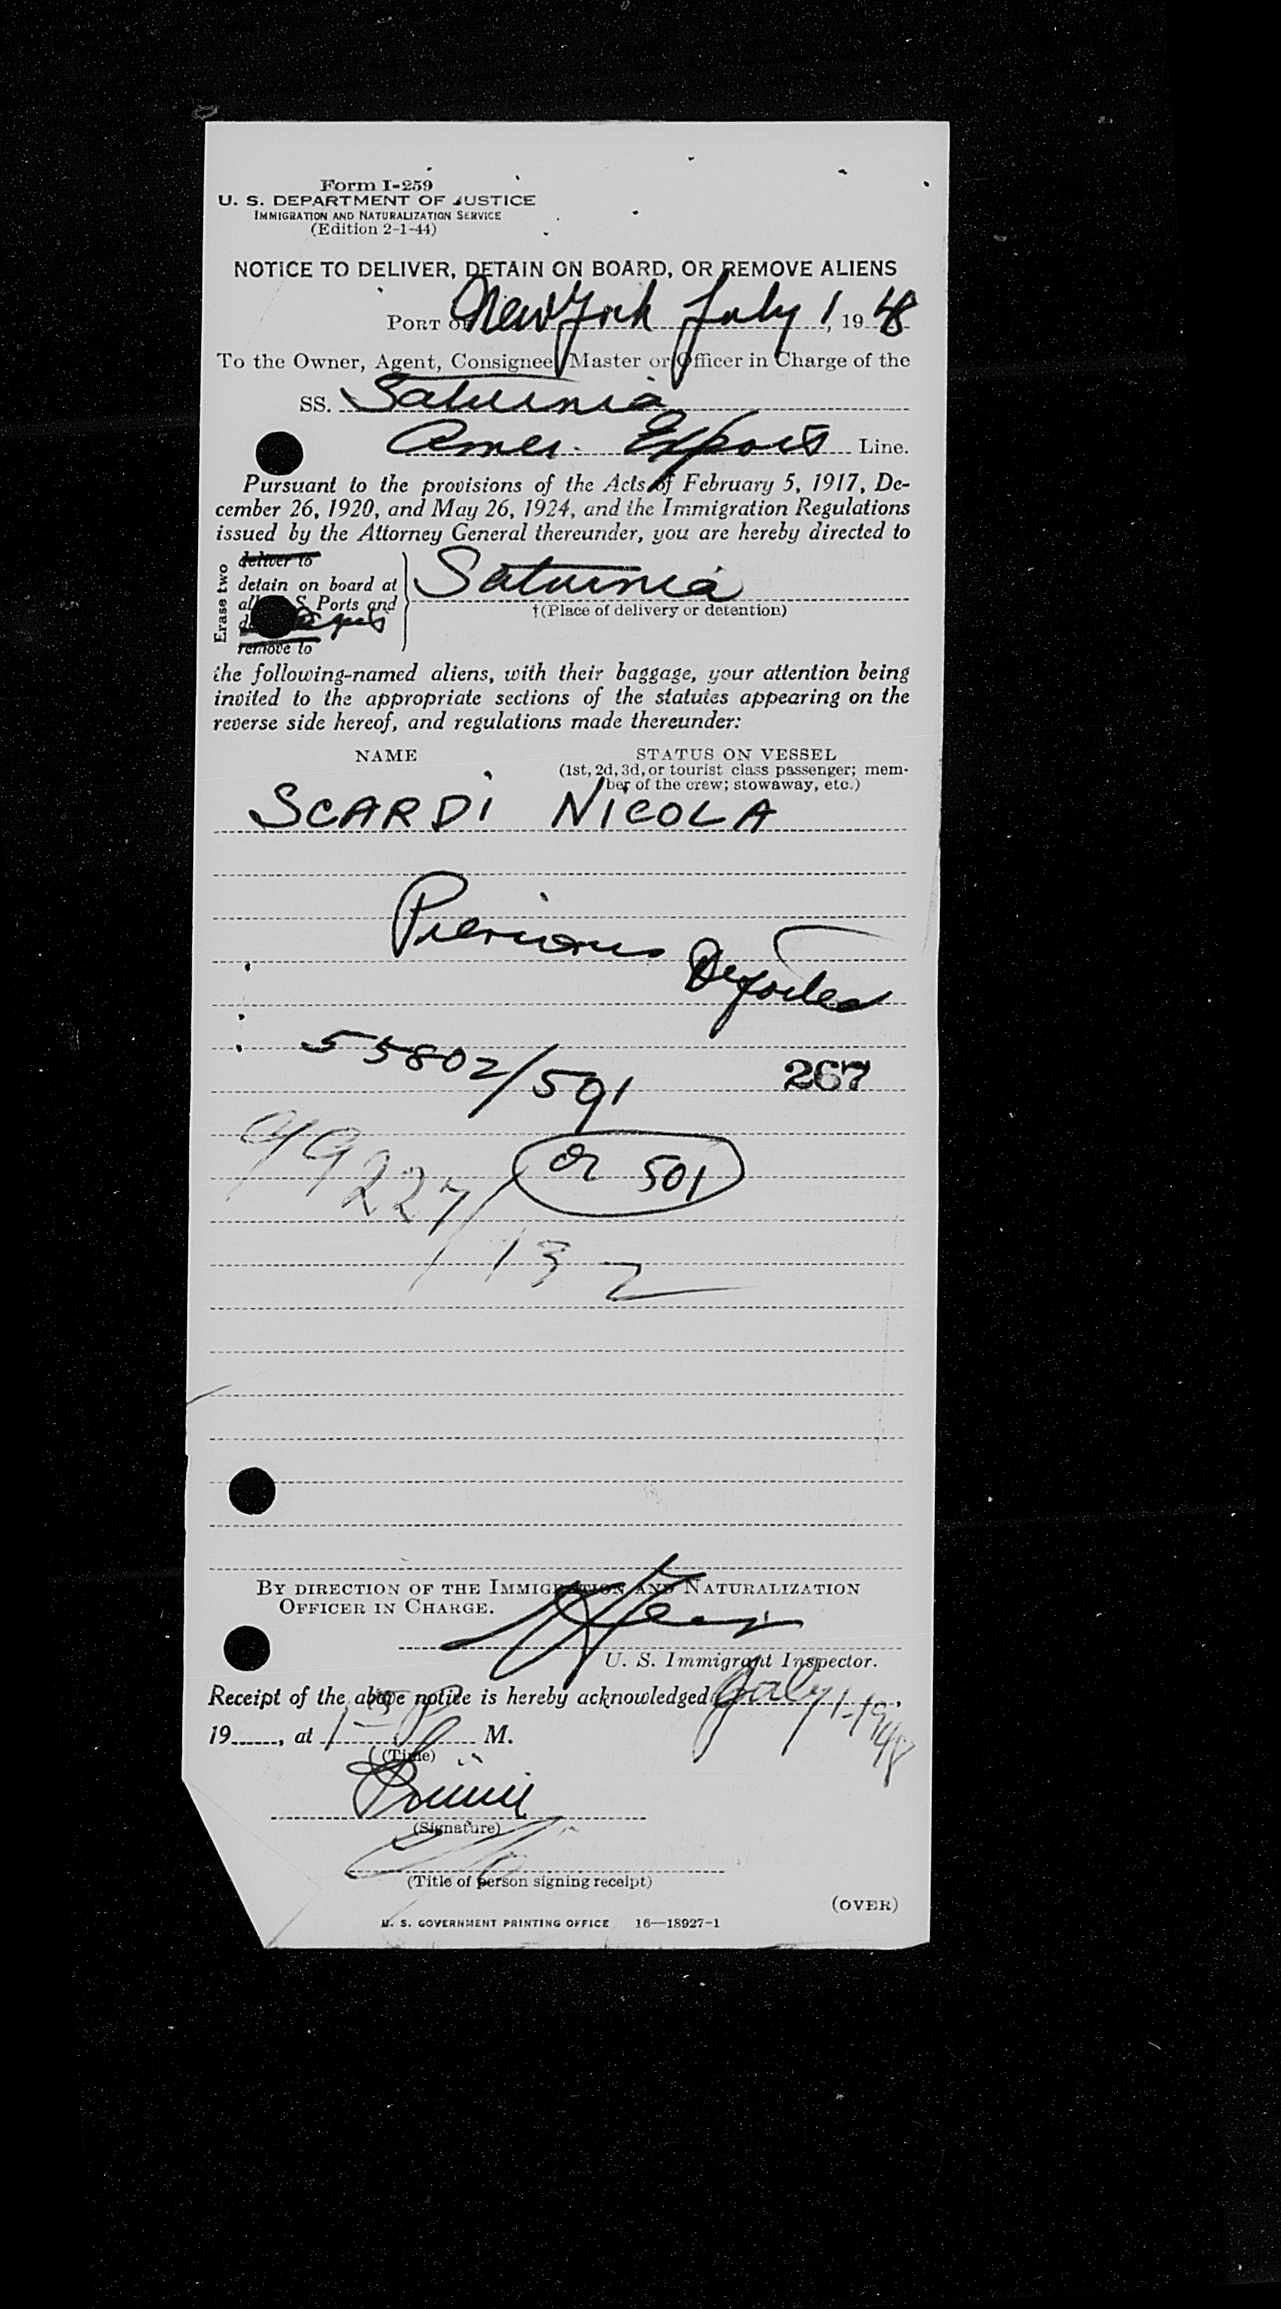 Form I-259
U. S. DEPARTMENT OF JUSTICE
IMMIGRATION AND NATURALIZATION SERVICE
(Edition 2-1-44)
NOTICE TO DELIVER, DETAIN ON BOARD, OR REMOVE ALIENS
PORT OF New York July 1, 1948
To the Owner, Agent, Consignee, Master or Officer in Charge of the
SS. Saturnia
Amer. Export Line.
Pursuant to the provisions of the Acts of February 5, 1917, De-
cember 26, 1920, and May 26, 1924, and the Immigration Regulations
issued by the Attorney General thereunder, you are hereby directed to
Erase two
deliver to
detain on board at
all S. Ports and
remove to
Saturnia
†(Place of delivery or detention)
the following-named aliens, with their baggage, your attention being
invited to the appropriate sections of the statutes appearing on the
reverse side hereof, and regulations made thereunder:
NAME STATUS ON VESSEL
(1st, 2d, 3d, or tourist class passenger; mem-
ber of the crew; stowaway, etc.)
SCARDI NICOLA
Previous
Deported
55802/591
267
or 501
99227/132
BY DIRECTION OF THE IMMIGRATION AND NATURALIZATION
OFFICER IN CHARGE.
U. S. Immigrant Inspector.
Receipt of the above notice is hereby acknowledged July 1-1948,
19......, at 1 P M.
(Time)
(Signature)
(Title of person signing receipt)
(OVER)
U. S. GOVERNMENT PRINTING OFFICE 16—18927-1